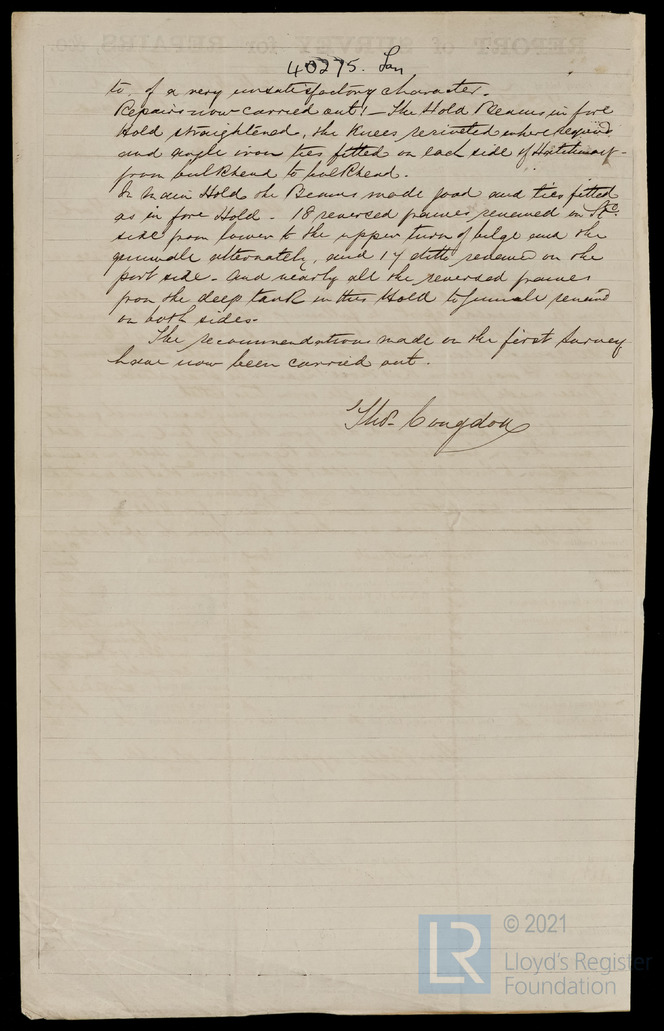 REPORT of SURVEY for REPAIRS, &c.
40275. Lon
to, of a very unsatisfactory character.
Repairs now carried out! – The Hold Beams in fore
hold straightened, the Knees reriveted where required
and angle iron ties fitted on each side of Hatchway
from bulkhead to bulkhead.
In Main Hold the Beams made good and ties fitted
as in fore Hold – 18 reversed frames renewed on St.
side from lower to the upper turn of bilge and the
gunwale alternately, and 17 ditto renewed on the
port side. And nearly all the reversed frames
from the deep tank in this Hold to gunwale renewed
on both sides.
The recommendations made on the first Survey
have now been carried out.
Thos. Congdon
LR
© 2021
Lloyd's Register
Foundation